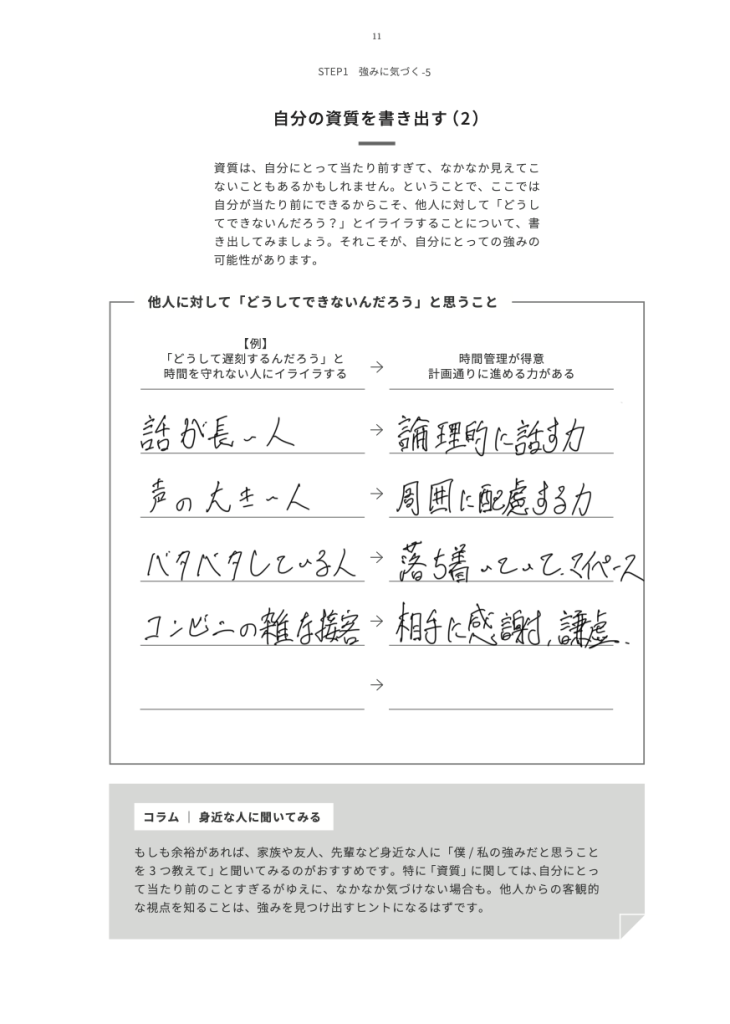 11
STEP1　強みに気づく-5
自分の資質を書き出す（2）
資質は、自分にとって当たり前すぎて、なかなか見えてこ
ないこともあるかもしれません。ということで、ここでは
自分が当たり前にできるからこそ、他人に対して「どうし
てできないんだろう？」とイライラすることについて、書
き出してみましょう。それこそが、自分にとっての強みの
可能性があります。
他人に対して「どうしてできないんだろう」と思うこと
【例】
「どうして遅刻するんだろう」と
時間を守れない人にイライラする
→
時間管理が得意
計画通りに進める力がある
話が長い人 → 論理的に話す力
声の大きい人 → 周囲に配慮する力
ベタベタしている人 → 落ち着いていて、マイペース
コンビニの雑な接客 → 相手に感謝、謙虚、
→
コラム｜身近な人に聞いてみる
もしも余裕があれば、家族や友人、先輩など身近な人に「僕 / 私の強みだと思うこと
を 3 つ教えて」と聞いてみるのがおすすめです。特に「資質」に関しては、自分にとっ
て当たり前のことすぎるがゆえに、なかなか気づけない場合も。他人からの客観的
な視点を知ることは、強みを見つけ出すヒントになるはずです。